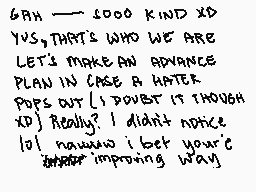 GAH — SOOO KIND XD
YUS, THAT'S WHO WE ARE
LET'S MAKE AN ADVANCE
PLAN IN CASE A HATER
POPS OUT (I DOUBT IT THOUGH
XD) Really? I didn't notice
lol nawww i bet your'e
improving way